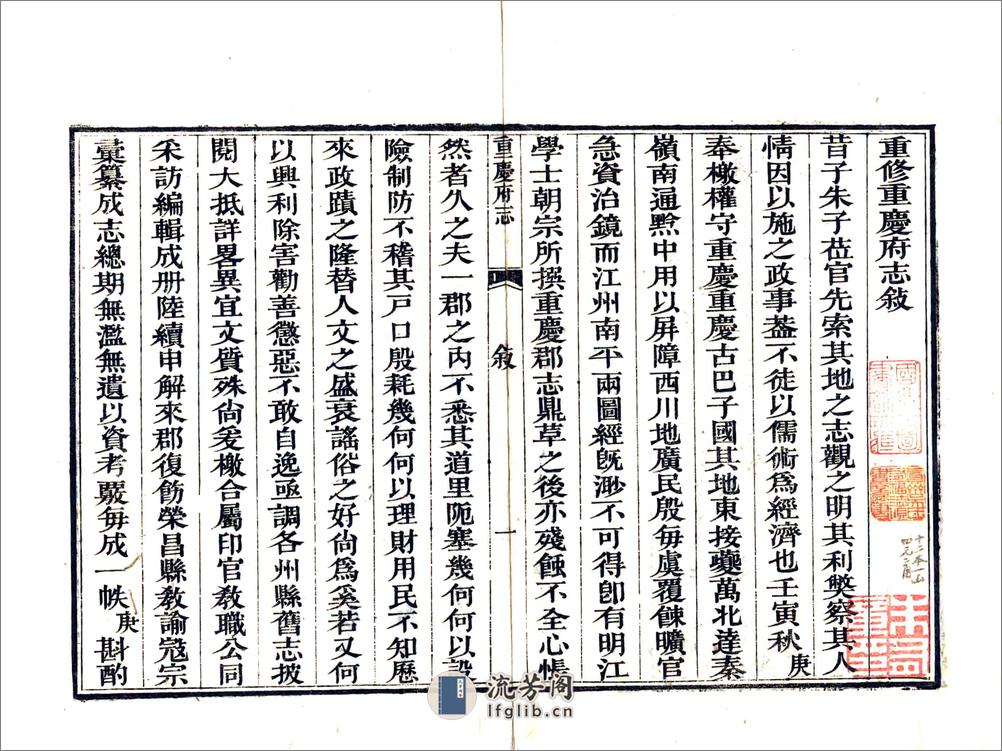 重修重慶府志敍
昔子朱子莅官先索其地之志觀之明其利獘察其人
情因以施之政事葢不徒以儒術爲經濟也壬寅秋庚
奉檄權守重慶重慶古巴子國其地東接夔萬北達秦
嶺南通黔中用以屛障西川地廣民殷每虞覆餗曠官
急資治鏡而江州南平兩圖經旣渺不可得卽有明江
學士朝宗所撰重慶郡志鼎革之後亦殘蝕不全心悵
然者久之夫一郡之內不悉其道里阨塞幾何何以設
險制防不稽其戸口殷耗幾何何以理財用民不知歷
來政蹟之隆替人文之盛衰謠俗之好尙爲奚若又何
以興利除害勸善懲惡不敢自逸亟調各州縣舊志披
閱大抵詳畧異宜文質殊尙爰檄合屬印官敎職公同
采訪編輯成册陸續申解來郡復飭榮昌縣敎諭寇宗
彙纂成志總期無濫無遺以資考覈每成一帙庚斟酌
重慶府志
敍
一
流芳阁
lfglib.cn